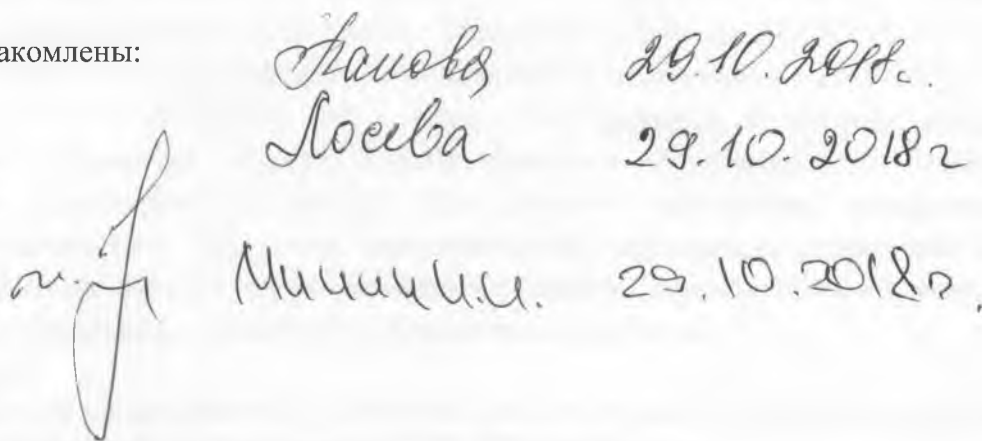 акомлены:
Панова 29.10.2018г.
Лосева 29.10.2018г
Минин И.И. 29.10.2018г.